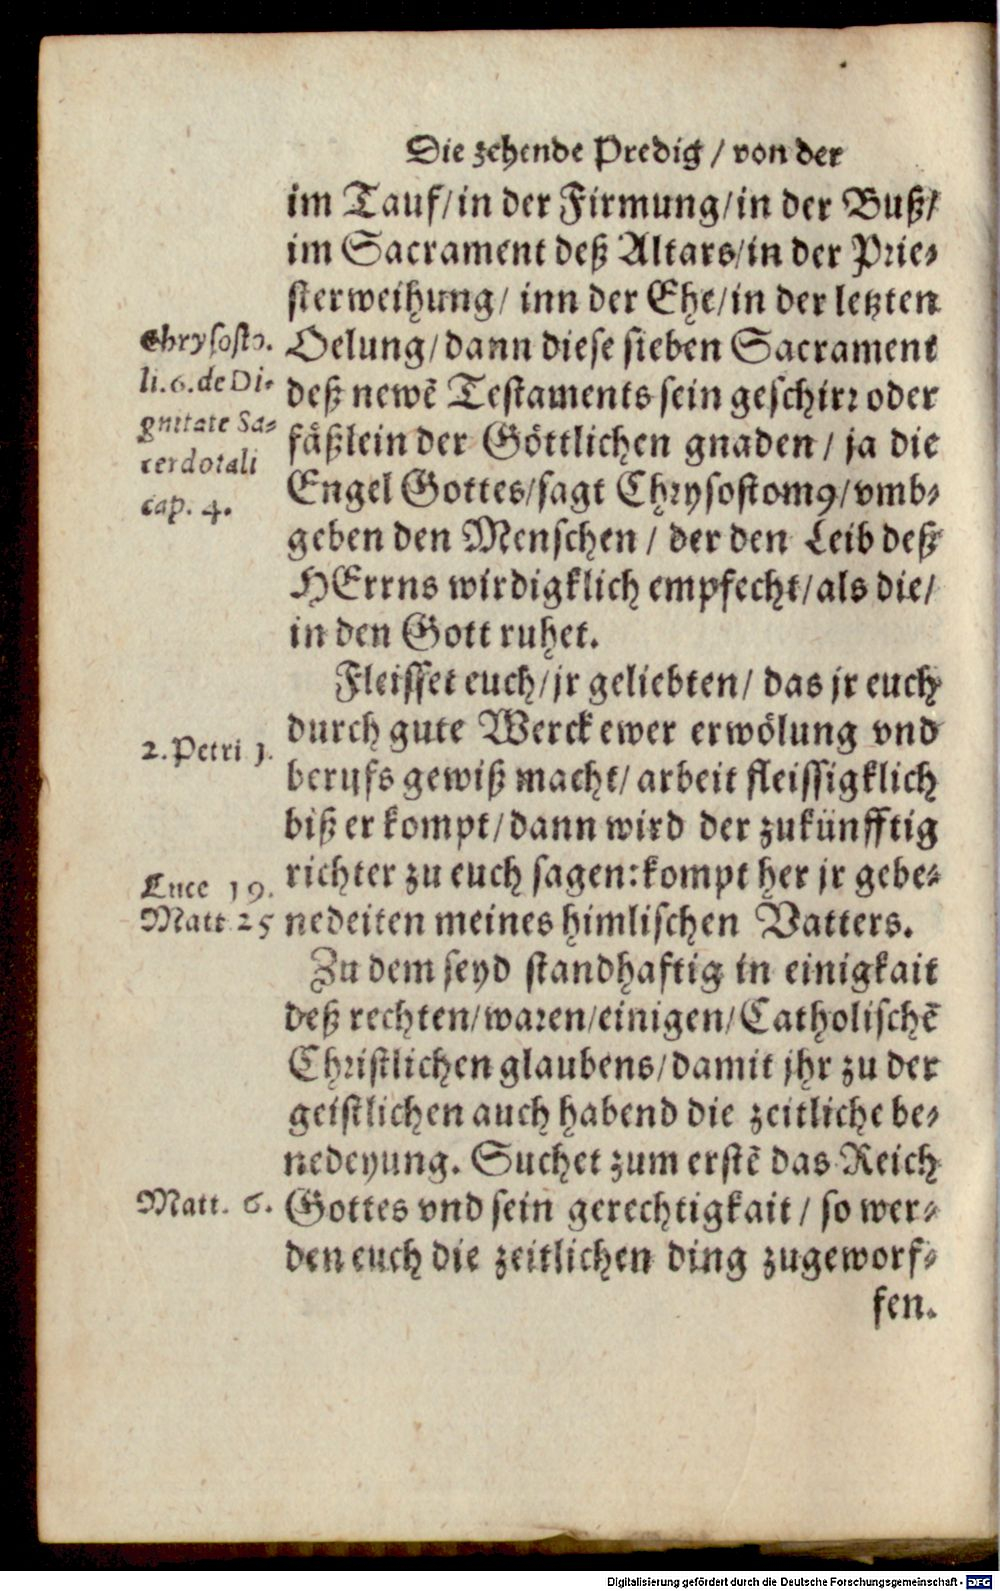 Die zehende Predig / von der
im Tauf/in der Firmung/in der Buß/
im Sacrament deß Altars/in der Prie-
sterweihung/ inn der Ehe/in der letzten
Oelung/dann diese sieben Sacrament
deß newē Testaments sein geschirr oder
fäßlein der Göttlichen gnaden / ja die
Engel Gottes/sagt Chrysostomꝰ/vmb-
geben den Menschen / der den Leib deß
HErrns wirdigklich empfecht/als die/
in den Gott ruhet.
Chrysosto.
li.6.de Di-
gnitate Sa-
cerdotali
cap. 4.
Fleisset euch/jr geliebten/ das jr euch
durch gute Werck ewer erwölung vnd
beruffs gewiß macht/ arbeit fleissigklich
biß er kompt/dann wird der zukünfftig
richter zu euch sagen:kompt her jr gebe-
nedeiten meines himlischen Vatters.
2. Petri 1.
Luce 19.
Matt 25
Zu dem seyd standhaftig in einigkait
deß rechten/waren/einigen/Catholischē
Christlichen glaubens/damit jhr zu der
geistlichen auch habend die zeitliche be-
nedeyung. Suchet zum erstē das Reich
Gottes vnd sein gerechtigkait / so wer-
den euch die zeitlichen ding zugeworf-
fen.
Matt. 6.
Digitalisierung gefördert durch die Deutsche Forschungsgemeinschaft - DFG